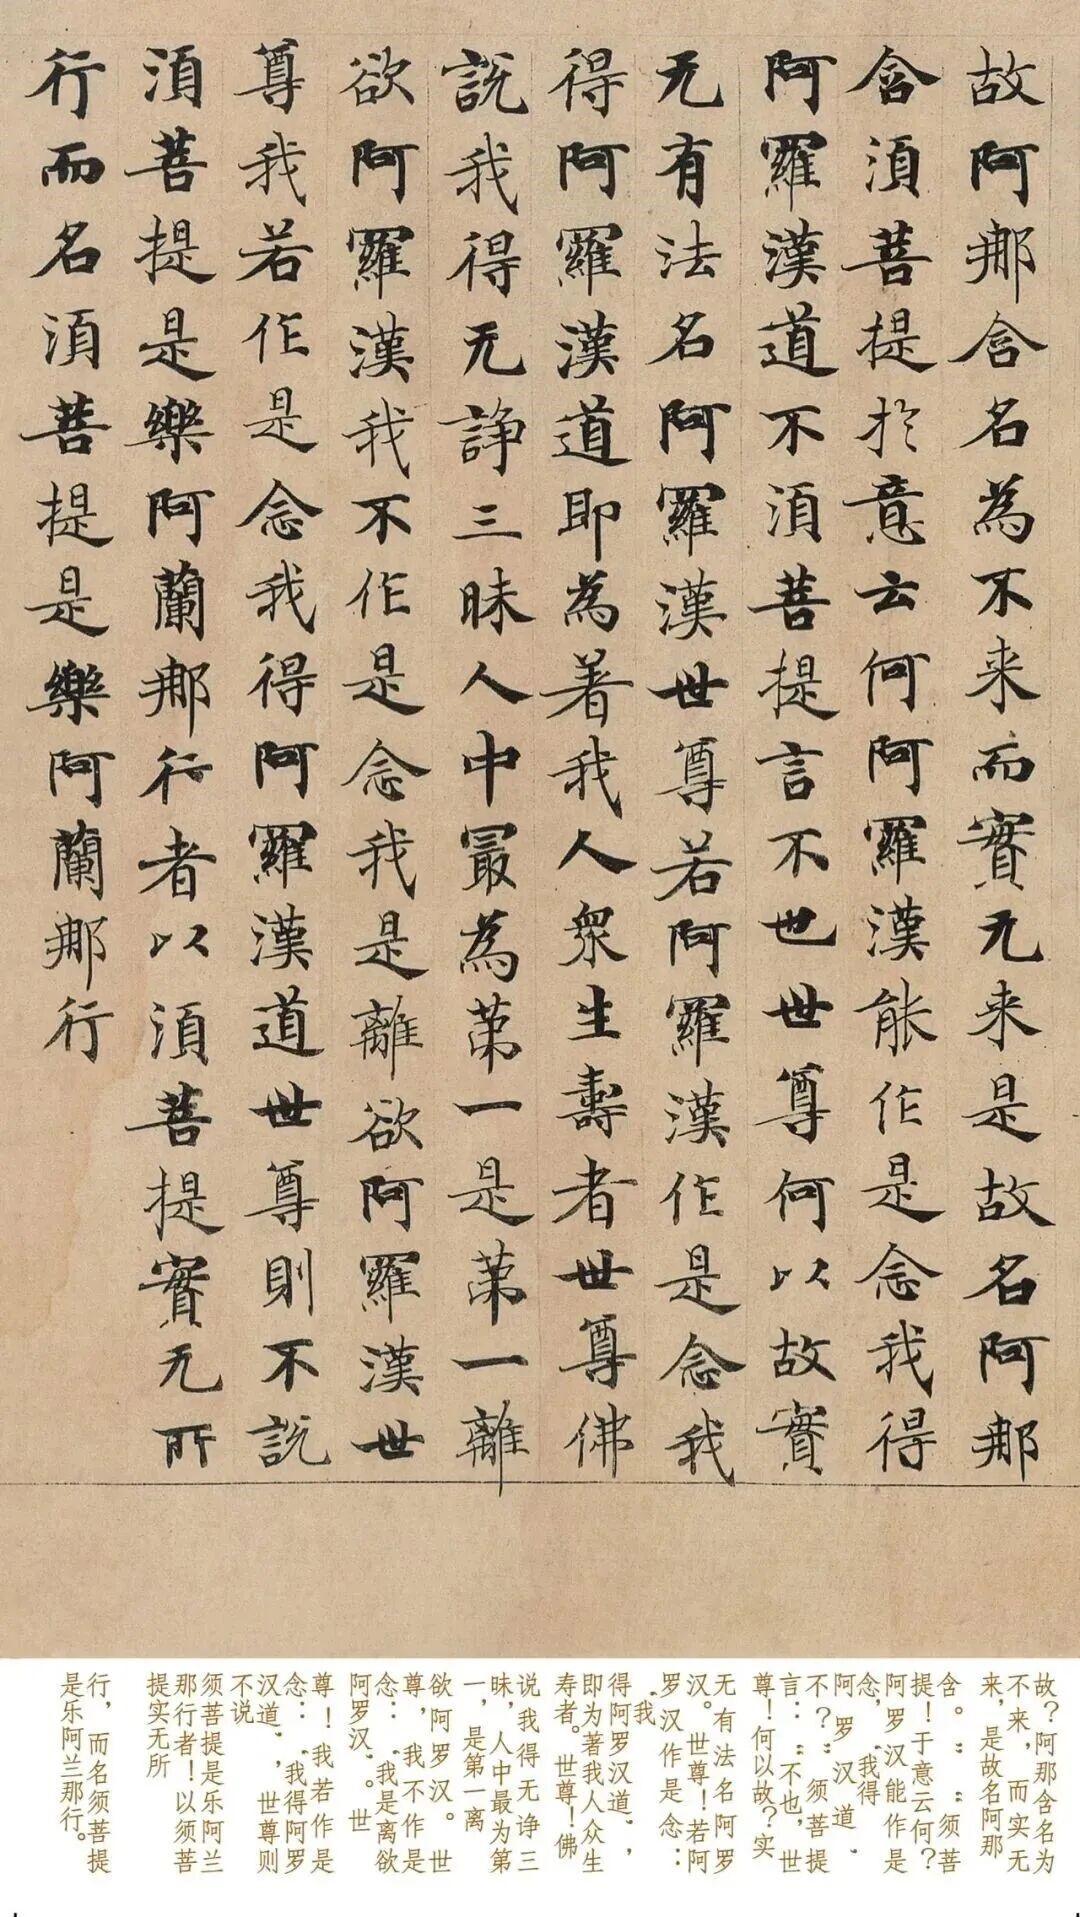 故阿那含名為不来而實无来是故名阿那
含須菩提於意云何阿羅漢能作是念我得
阿羅漢道不須菩提言不也世尊何以故實
无有法名阿羅漢世尊若阿羅漢作是念我
得阿羅漢道即為著我人衆生壽者世尊佛
説我得无諍三昧人中冣為苐一是苐一離
欲阿羅漢我不作是念我是離欲阿羅漢世
尊我若作是念我得阿羅漢道世尊則不説
須菩提是樂阿蘭那行者以須菩提實无所
行而名須菩提是樂阿蘭那行
故？阿那含名为
不来，而实无
来，是故名阿那
含。”“须菩
提！于意云何？
阿罗汉能作是
念，‘我得
阿罗汉道’
不？”须菩提
言：“不也，世
尊！何以故？实
无有法名阿罗
汉。世尊！若阿
罗汉作是念：
‘我
得阿罗汉道’，
即为著我人众生
寿者。世尊！佛
说我得无诤三
昧，人中最为第
一，是第一离
欲阿罗汉。世
尊，我不作是
念：‘我是离欲
阿罗汉’。世
尊！我若作是
念：‘我得阿罗
汉道’，世尊则
不说
须菩提是乐阿兰
那行者！以须菩
提实无所
行，而名须菩提
是乐阿兰那行。